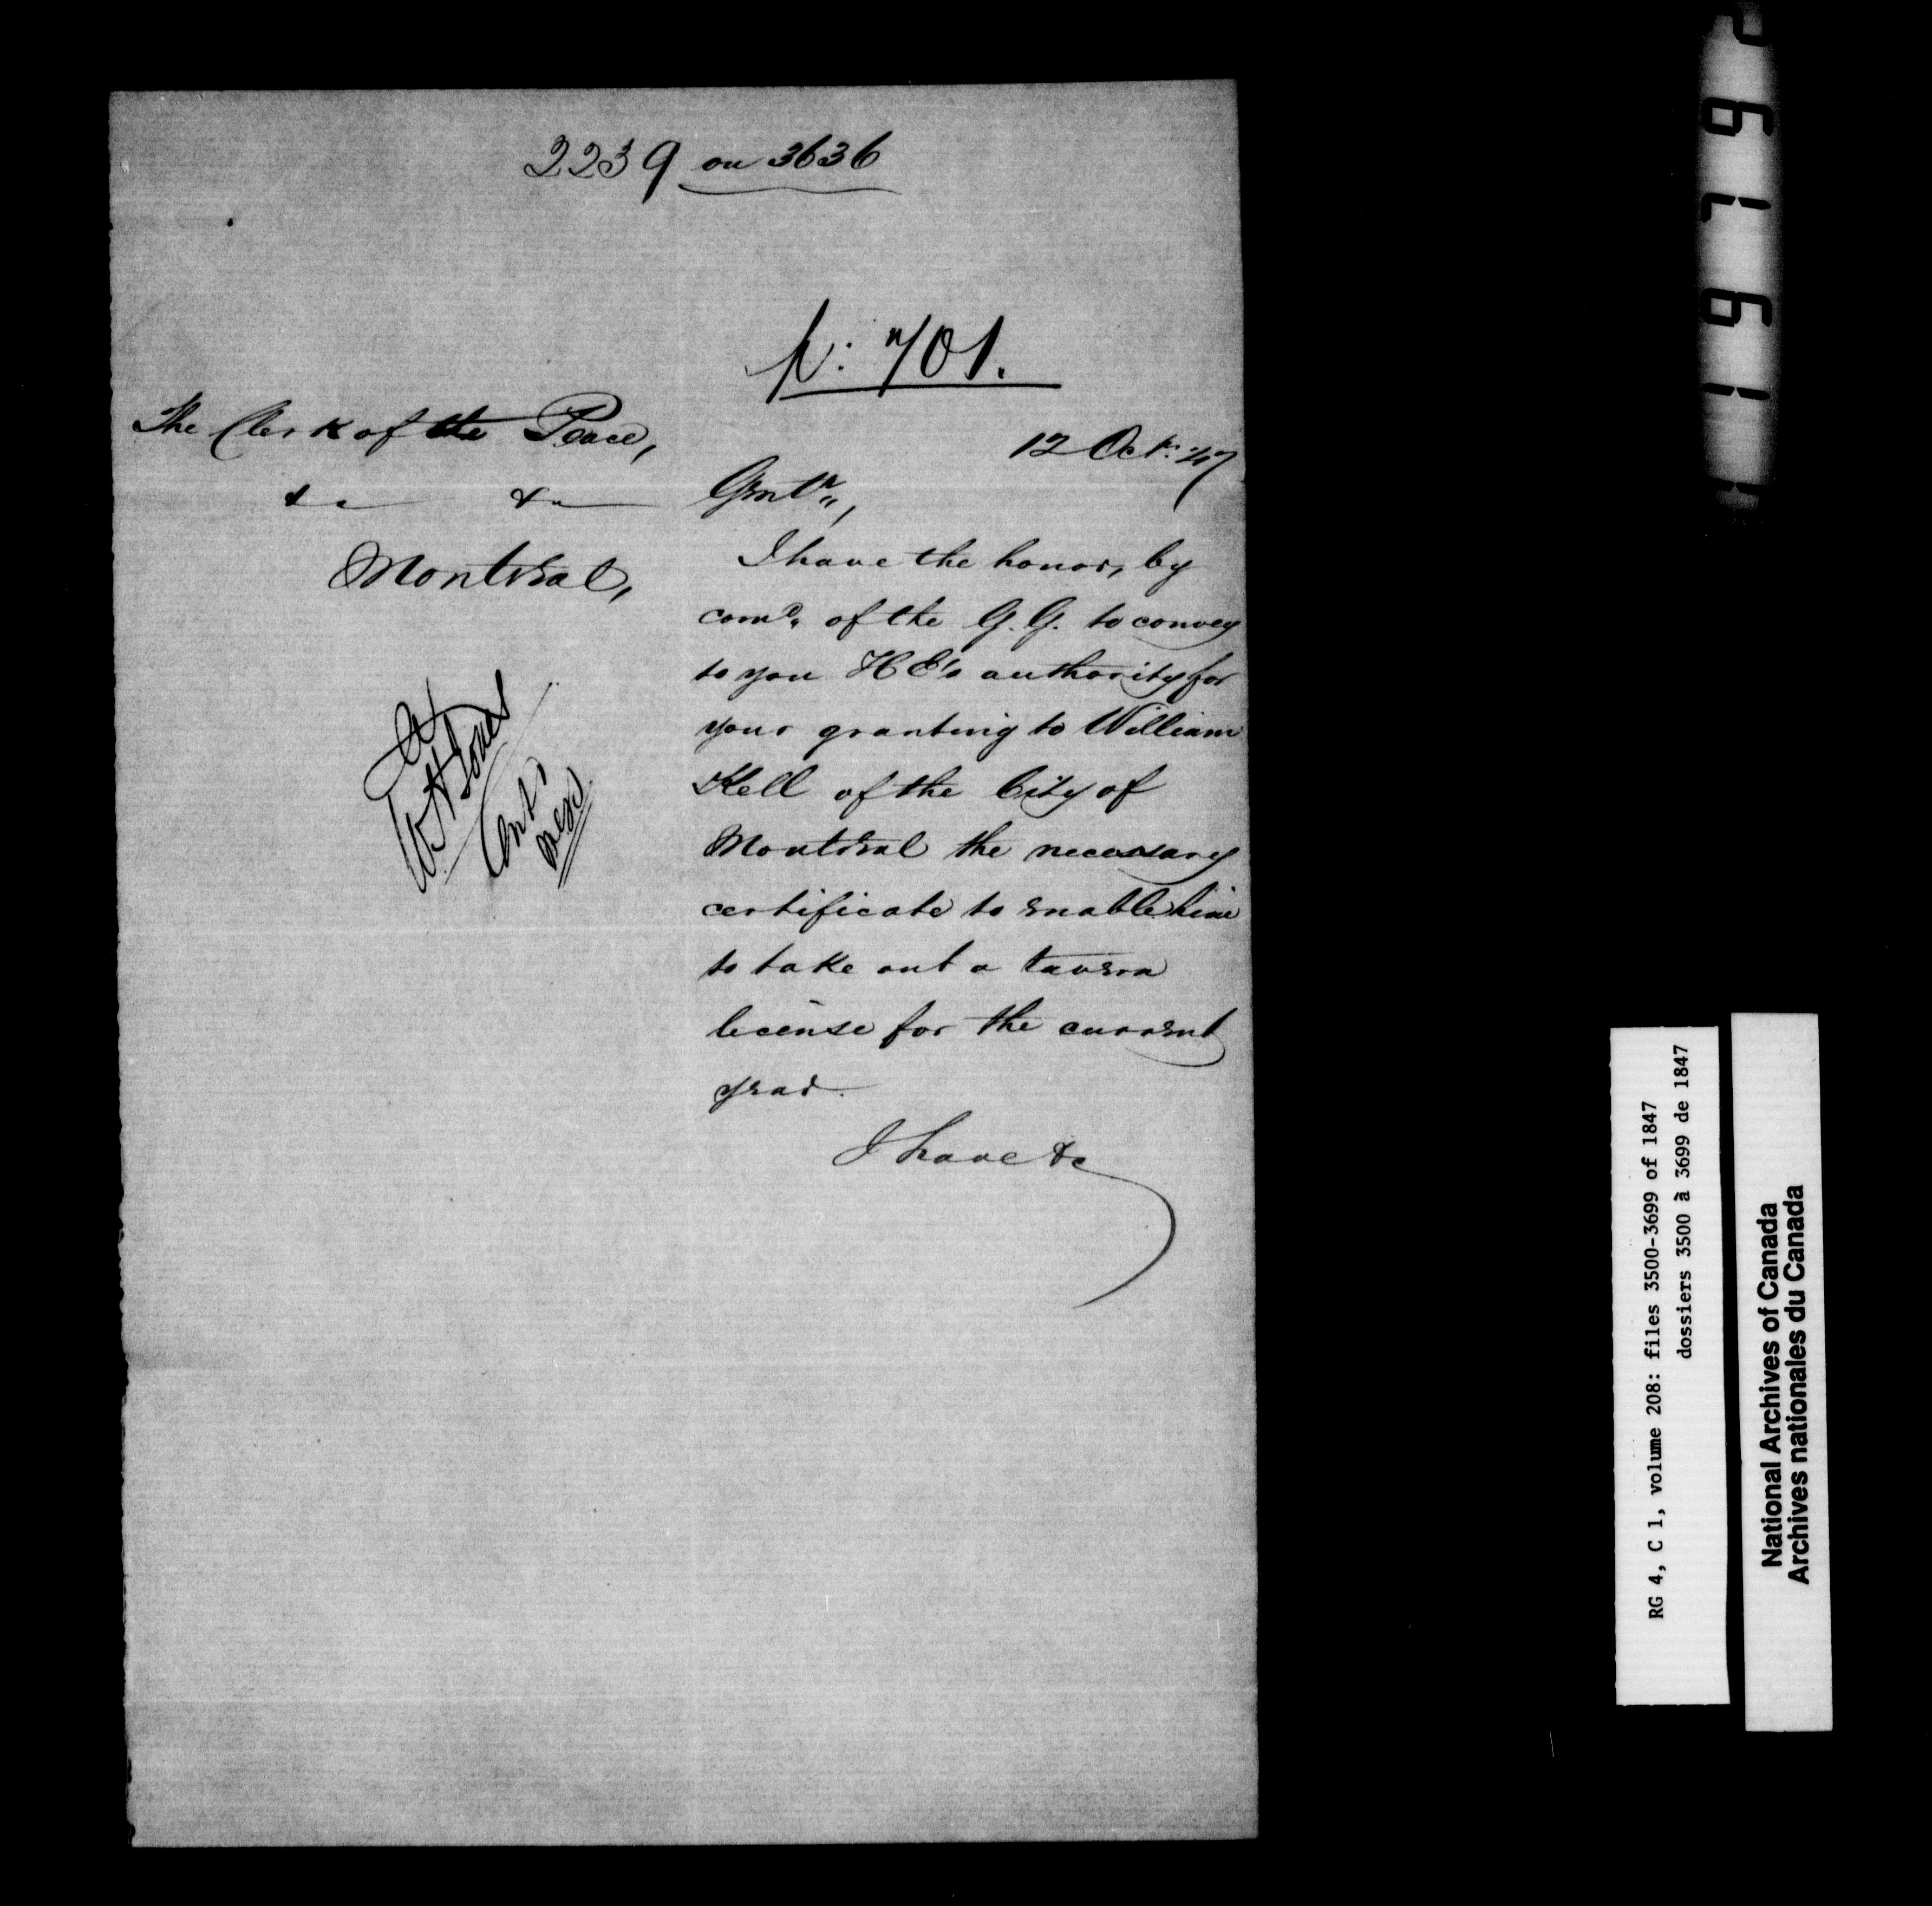 2239 on 3636
p: 701.
The Clerk of the Peace,
&c &c
Montreal,
12 Oct: 47
Gentn,
I have the honor, by
comd. of the G. G. to convey
to you H E's authority for
your granting to William
Kell of the City of
Montreal the necessary
certificate to enable him
to take out a tavern
license for the current
year.
I have &c
W H Jones
RG 4, C 1, volume 208: files 3500-3699 of 1847
dossiers 3500 à 3699 de 1847
National Archives of Canada
Archives nationales du Canada